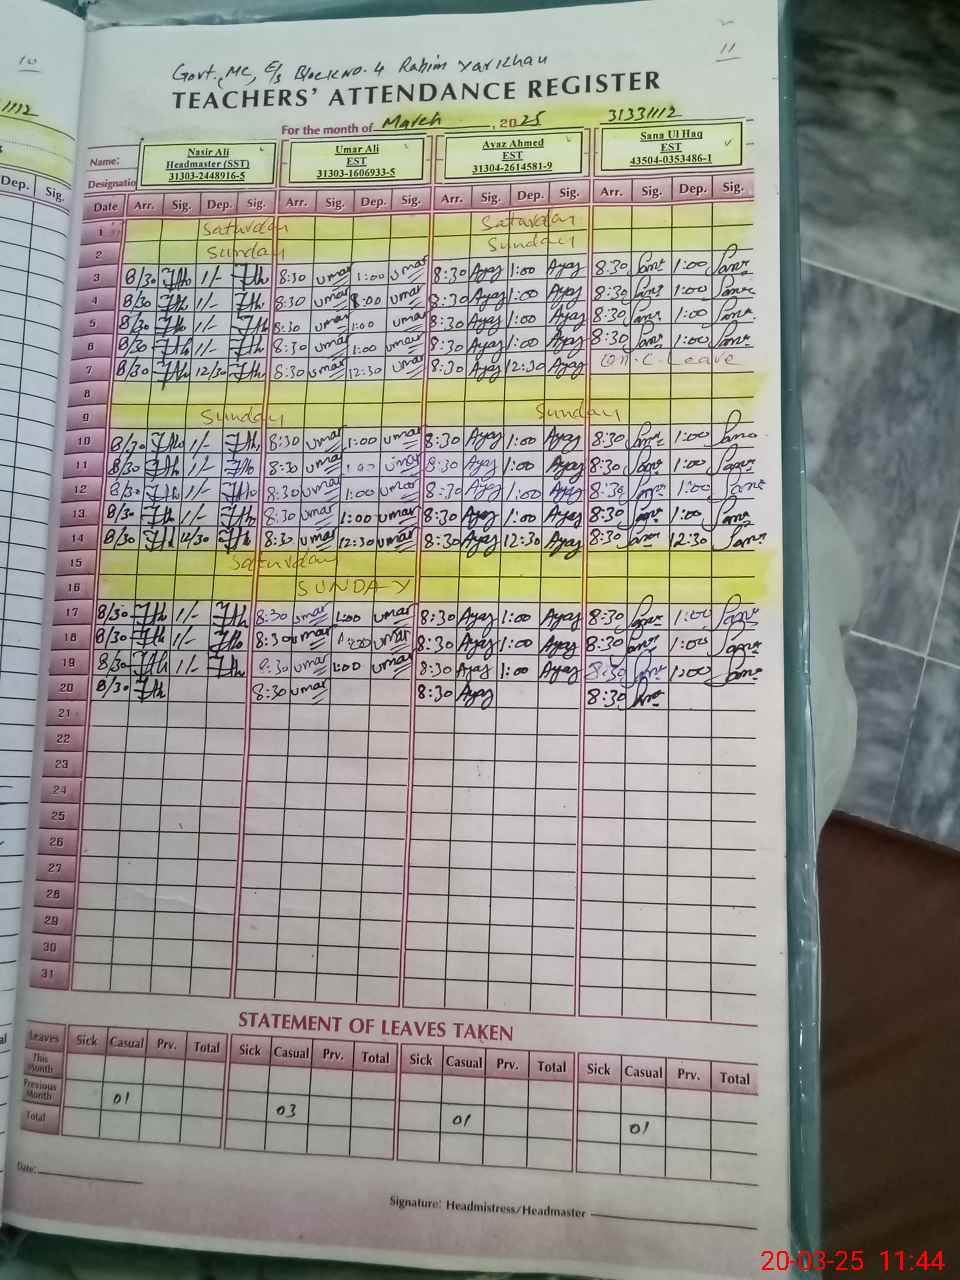 10
11
1112
Dep. Sig.
Govt. MC, E/s Block No. 4 Rahim Yar Khan
TEACHERS' ATTENDANCE REGISTER
For the month of March, 2025 31331112
Name: Nasir Ali Umar Ali Ayaz Ahmed Sana Ul Haq
Designatio Headmaster (SST) EST EST EST
31303-2448916-5 31303-1606933-5 31304-2614581-9 43504-0353486-1
Date Arr. Sig. Dep. Sig. Arr. Sig. Dep. Sig. Arr. Sig. Dep. Sig. Arr. Sig. Dep. Sig.
1 Saturday Saturday
2 Sunday Sunday
3 8/30 1/- 8:30 umar 1:00 umar 8:30 Ayaz 1:00 Ayaz 8:30 1:00
4 8/30 1/- 8:30 umar 1:00 umar 8:30 Ayaz 1:00 Ayaz 8:30 1:00
5 8/30 1/- 8:30 umar 1:00 umar 8:30 Ayaz 1:00 Ayaz 8:30 1:00
6 8/30 1/- 8:30 umar 1:00 umar 8:30 Ayaz 1:00 Ayaz 8:30 1:00
7 8/30 12/30 8:30 umar 12:30 umar 8:30 Ayaz 12:30 Ayaz On C. Leave
8
9 Sunday Sunday
10 8/30 1/- 8:30 umar 1:00 umar 8:30 Ayaz 1:00 Ayaz 8:30 1:00
11 8/30 1/- 8:30 umar 1:00 umar 8:30 Ayaz 1:00 Ayaz 8:30 1:00
12 8/30 1/- 8:30 umar 1:00 umar 8:30 Ayaz 1:00 Ayaz 8:30 1:00
13 8/30 1/- 8:30 umar 1:00 umar 8:30 Ayaz 1:00 Ayaz 8:30 1:00
14 8/30 12/30 8:30 umar 12:30 umar 8:30 Ayaz 12:30 Ayaz 8:30 12:30
15 Saturday
16 SUNDAY
17 8/30 1/- 8:30 umar 1:00 umar 8:30 Ayaz 1:00 Ayaz 8:30 1:00
18 8/30 1/- 8:30 umar 1:00 umar 8:30 Ayaz 1:00 Ayaz 8:30 1:00
19 8/30 1/- 8:30 umar 1:00 umar 8:30 Ayaz 1:00 Ayaz 8:30 1:00
20 8/30 8:30 umar 8:30 Ayaz 8:30
21
22
23
24
25
26
27
28
29
30
31
STATEMENT OF LEAVES TAKEN
Leaves Sick Casual Prv. Total Sick Casual Prv. Total Sick Casual Prv. Total Sick Casual Prv. Total
This Month
Previous Month 01 03 01 01
Total
Date:
Signature: Headmistress/Headmaster
20-03-25 11:44